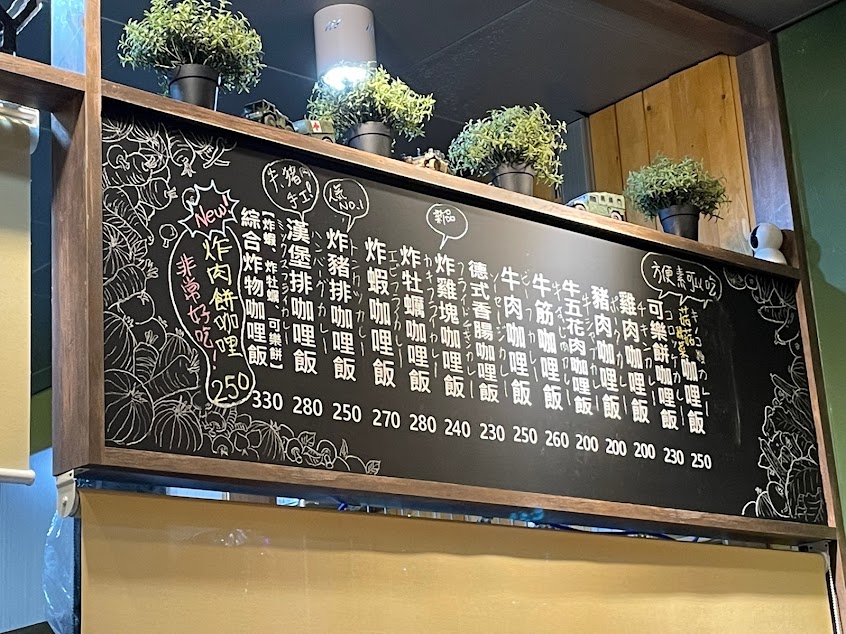 方便素可以吃
菇菇咖哩飯
250
コロッケカレー
可樂餅咖哩飯
230
チキンカレー
雞肉咖哩飯
200
ポークカレー
豬肉咖哩飯
200
牛五花肉咖哩飯
200
牛筋咖哩飯
260
ビーフカレー
牛肉咖哩飯
250
ソーセージカレー
德式香腸咖哩飯
230
新品
フライドチキンカレー
炸雞塊咖哩飯
240
カキフライカレー
炸牡蠣咖哩飯
280
エビフライカレー
炸蝦咖哩飯
270
No.1
トンカツカレー
炸豬排咖哩飯
250
牛、豬
手工!
ハンバーグカレー
漢堡排咖哩飯
280
ミックスフライカレー
【炸蝦、炸牡蠣、可樂餅】
綜合炸物咖哩飯
330
New!
炸肉餅咖哩
250
非常好吃!